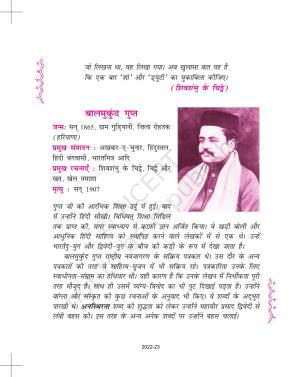 जो लिखना था, वह लिखा गया। अब खुलासा बात यह है
कि एक बार 'शो' और 'ड्यूटी' का मुकाबिला कीजिए।
(शिवशंभु के चिट्ठे)
बालमुकुंद गुप्त
जन्म: सन् 1865, ग्राम गुड़ियानी, ज़िला रोहतक
(हरियाणा)
प्रमुख संपादन : अखबार-ए-चुनार, हिंदुस्तान,
हिंदी बंगवासी, भारतमित्र आदि
प्रमुख रचनाएँ : शिवशंभु के चिट्ठे, चिट्ठे और
खत, खेल तमाशा
मृत्यु : सन् 1907
गुप्त जी को आरंभिक शिक्षा उर्दू में हुई। बाद
में उन्होंने हिंदी सीखी। विधिवत् शिक्षा मिडिल
तक प्राप्त की, मगर स्वाध्याय से काफ़ी ज्ञान अर्जित किया। वे खड़ी बोली और
आधुनिक हिंदी साहित्य को स्थापित करने वाले लेखकों में से एक थे। उन्हें
भारतेंदु-युग और द्विवेदी-युग के बीच की कड़ी के रूप में देखा जाता है।
बालमुकुंद गुप्त राष्ट्रीय नवजागरण के सक्रिय पत्रकार थे। उस दौर के अन्य
पत्रकारों की तरह वे साहित्य-सृजन में भी सक्रिय रहे। पत्रकारिता उनके लिए
स्वाधीनता-संग्राम का हथियार थी। यही कारण है कि उनके लेखन में निर्भीकता पूरी
तरह मौजूद है। साथ ही उसमें व्यंग्य-विनोद का भी पुट दिखाई पड़ता है। उन्होंने
बांग्ला और संस्कृत की कुछ रचनाओं के अनुवाद भी किए। वे शब्दों के अद्भुत
पारखी थे। अनस्थिरता शब्द की शुद्धता को लेकर उन्होंने महावीर प्रसाद द्विवेदी से
लंबी बहस की। इस तरह के अन्य अनेक शब्दों पर उन्होंने बहस चलाई।
2022-23